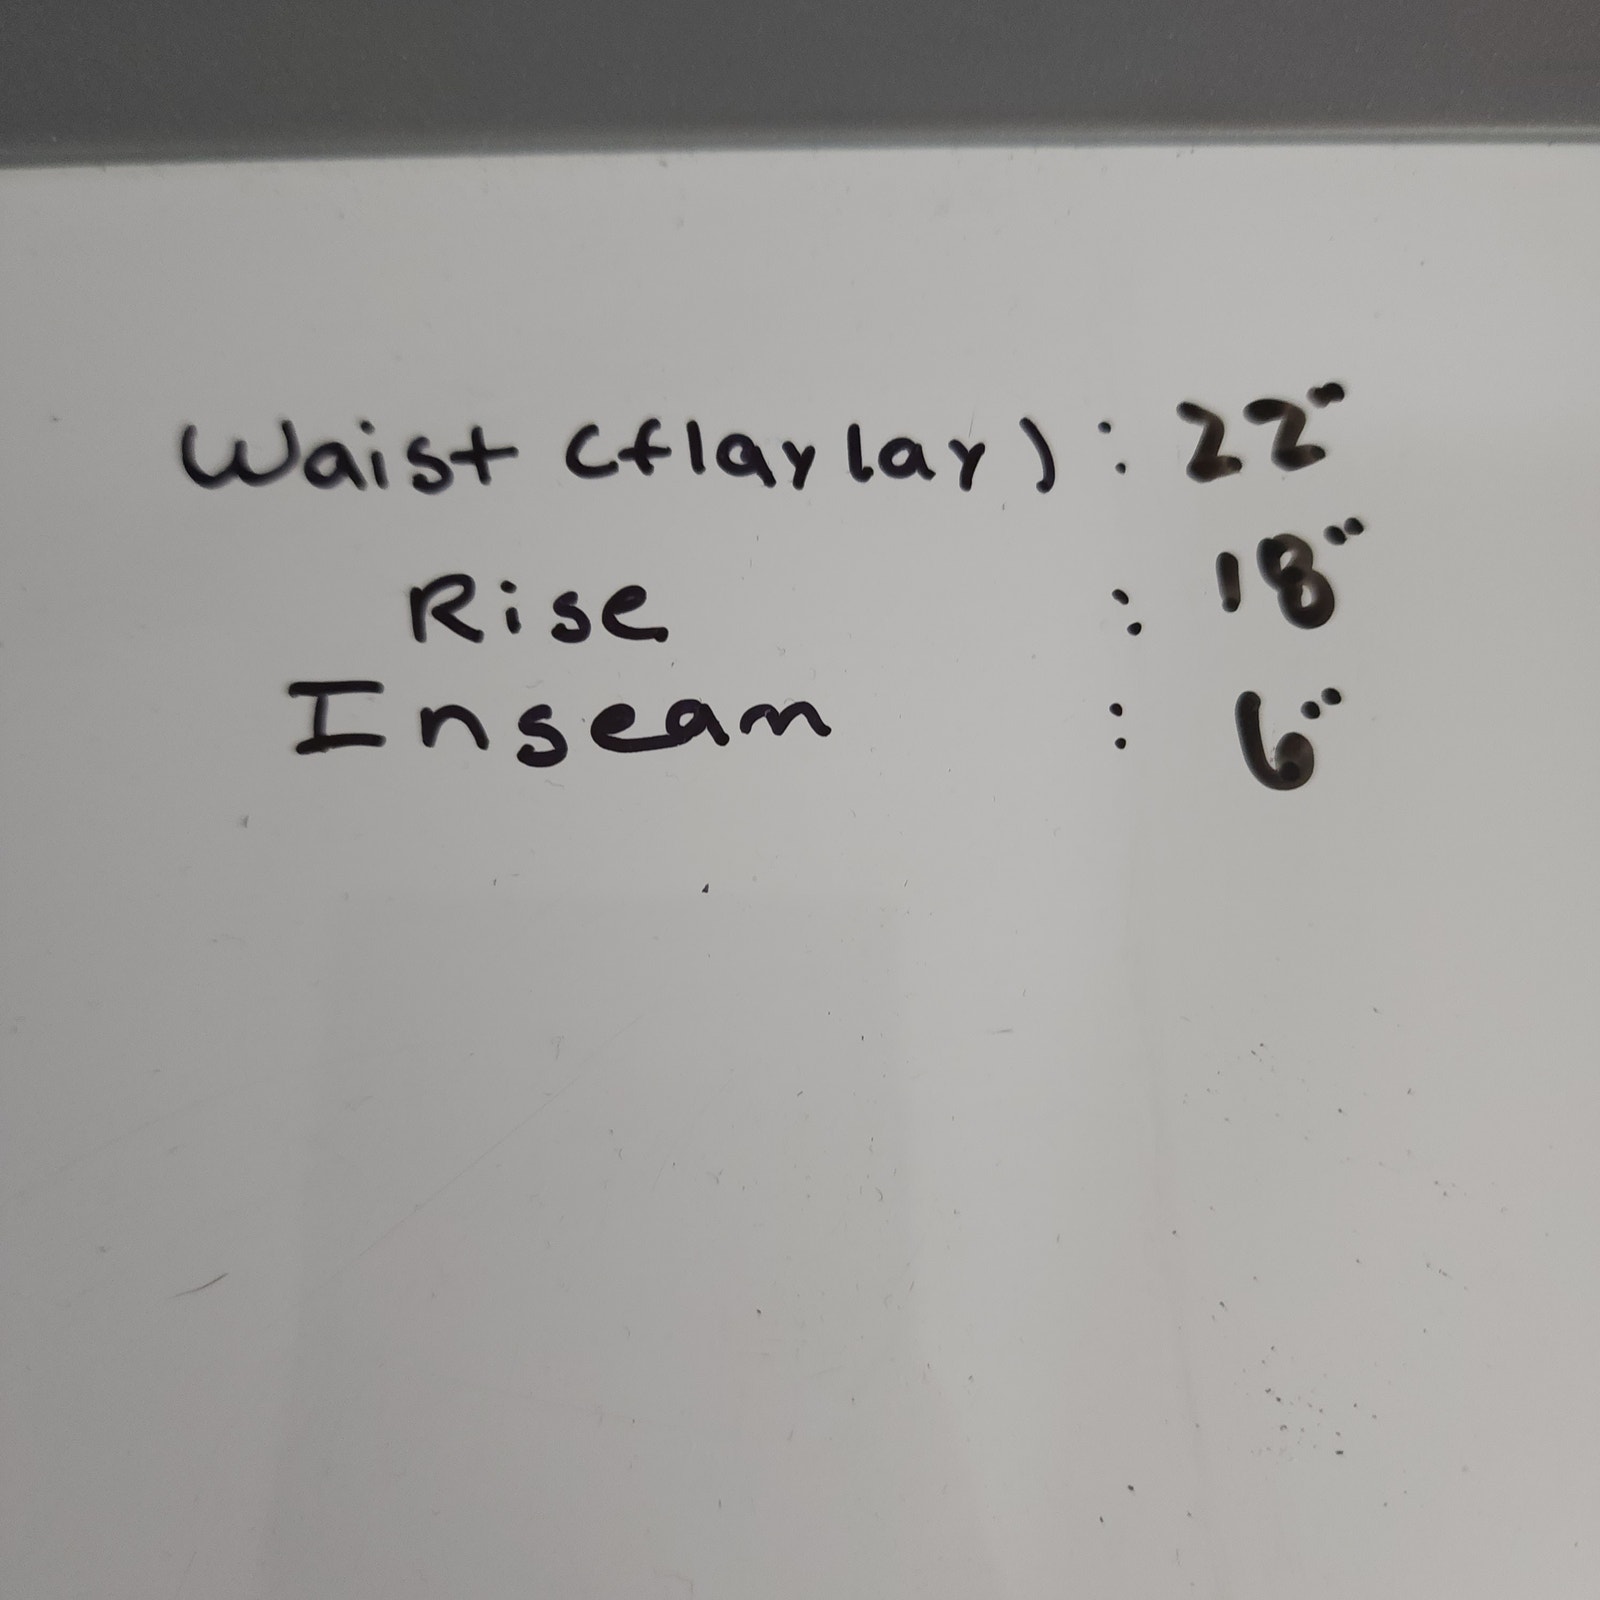 Waist (flaylay) : 22"
Rise : 18"
Inseam : 6"